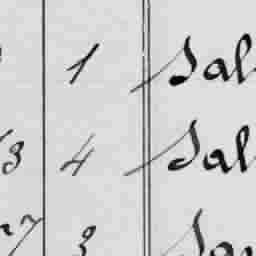 1 Sal
3 4 Sal
3